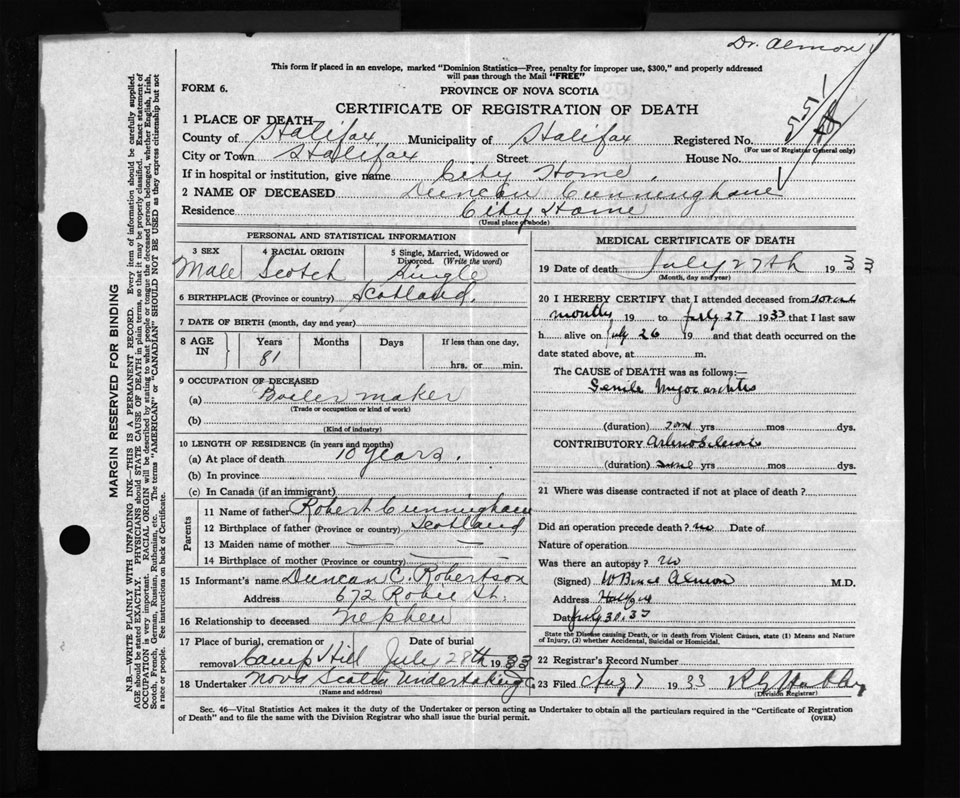 Dr. Almon
This form if placed in an envelope, marked "Dominion Statistics—Free, penalty for improper use, $300," and properly addressed
will pass through the Mail "FREE"
FORM 6.
PROVINCE OF NOVA SCOTIA
CERTIFICATE OF REGISTRATION OF DEATH
1 PLACE OF DEATH
County of Halifax Municipality of Halifax Registered No.
(For use of Registrar General only)
City or Town Halifax Street House No.
If in hospital or institution, give name City Home.
2 NAME OF DECEASED Duncan Cunninghame
Residence City Home
(Usual place of abode)
MARGIN RESERVED FOR BINDING
N.B.—WRITE PLAINLY WITH UNFADING INK—THIS IS A PERMANENT RECORD. Every item of information should be carefully supplied.
AGE should be stated EXACTLY. PHYSICIANS should STATE CAUSE OF DEATH in plain terms, so that it may be properly classified. Exact statement of
OCCUPATION is very important. RACIAL ORIGIN will be described by stating to what people or tongue the deceased person belonged, whether English, Irish,
Scotch, French, German, Russian, Ruthenian, etc. The terms "AMERICAN" or "CANADIAN" SHOULD NOT BE USED as they express citizenship but not
a race or people. See instructions on back of Certificate.
PERSONAL AND STATISTICAL INFORMATION
3 SEX 4 RACIAL ORIGIN 5 Single, Married, Widowed or
Divorced. (Write the word)
Male Scotch Single
6 BIRTHPLACE (Province or country) Scotland.
7 DATE OF BIRTH (month, day and year)
8 AGE
IN
Years Months Days If less than one day,
81
hrs. or min.
9 OCCUPATION OF DECEASED
(a) Boiler maker
(Trade or occupation or kind of work)
(b)
(Kind of industry)
10 LENGTH OF RESIDENCE (in years and months)
(a) At place of death 10 years.
(b) In province
(c) In Canada (if an immigrant)
Parents
11 Name of father Robert Cunningham
12 Birthplace of father (Province or country) Scotland
13 Maiden name of mother
14 Birthplace of mother (Province or country)
15 Informant's name Duncan C. Robertson
Address 672 Robie St.
16 Relationship to deceased Nephew
17 Place of burial, cremation or Date of burial
removal Camp Hill July 28th 1933
18 Undertaker Nova Scotia Undertaking
(Name and address)
MEDICAL CERTIFICATE OF DEATH
19 Date of death July 27th 193 3
(Month, day and year)
20 I HEREBY CERTIFY that I attended deceased from
months 19 to July 27 1933 that I last saw
h alive on July 26 19 and that death occurred on the
date stated above, at m.
The CAUSE of DEATH was as follows:—
Senile Myocarditis
(duration) yrs mos dys.
CONTRIBUTORY Arteriosclerosis
(duration) yrs mos dys.
21 Where was disease contracted if not at place of death?
Did an operation precede death? no Date of
Nature of operation
Was there an autopsy? no
(Signed) W Bruce Almon M.D.
Address Halifax
Date July 30. 33
State the Disease causing Death, or in death from Violent Causes, state (1) Means and Nature
of Injury, (2) whether Accidental, Suicidal or Homicidal.
22 Registrar's Record Number
23 Filed Aug 7 1933
(Division Registrar)
Sec. 46—Vital Statistics Act makes it the duty of the Undertaker or person acting as Undertaker to obtain all the particulars required in the "Certificate of Registration
of Death" and to file the same with the Division Registrar who shall issue the burial permit.
(OVER)